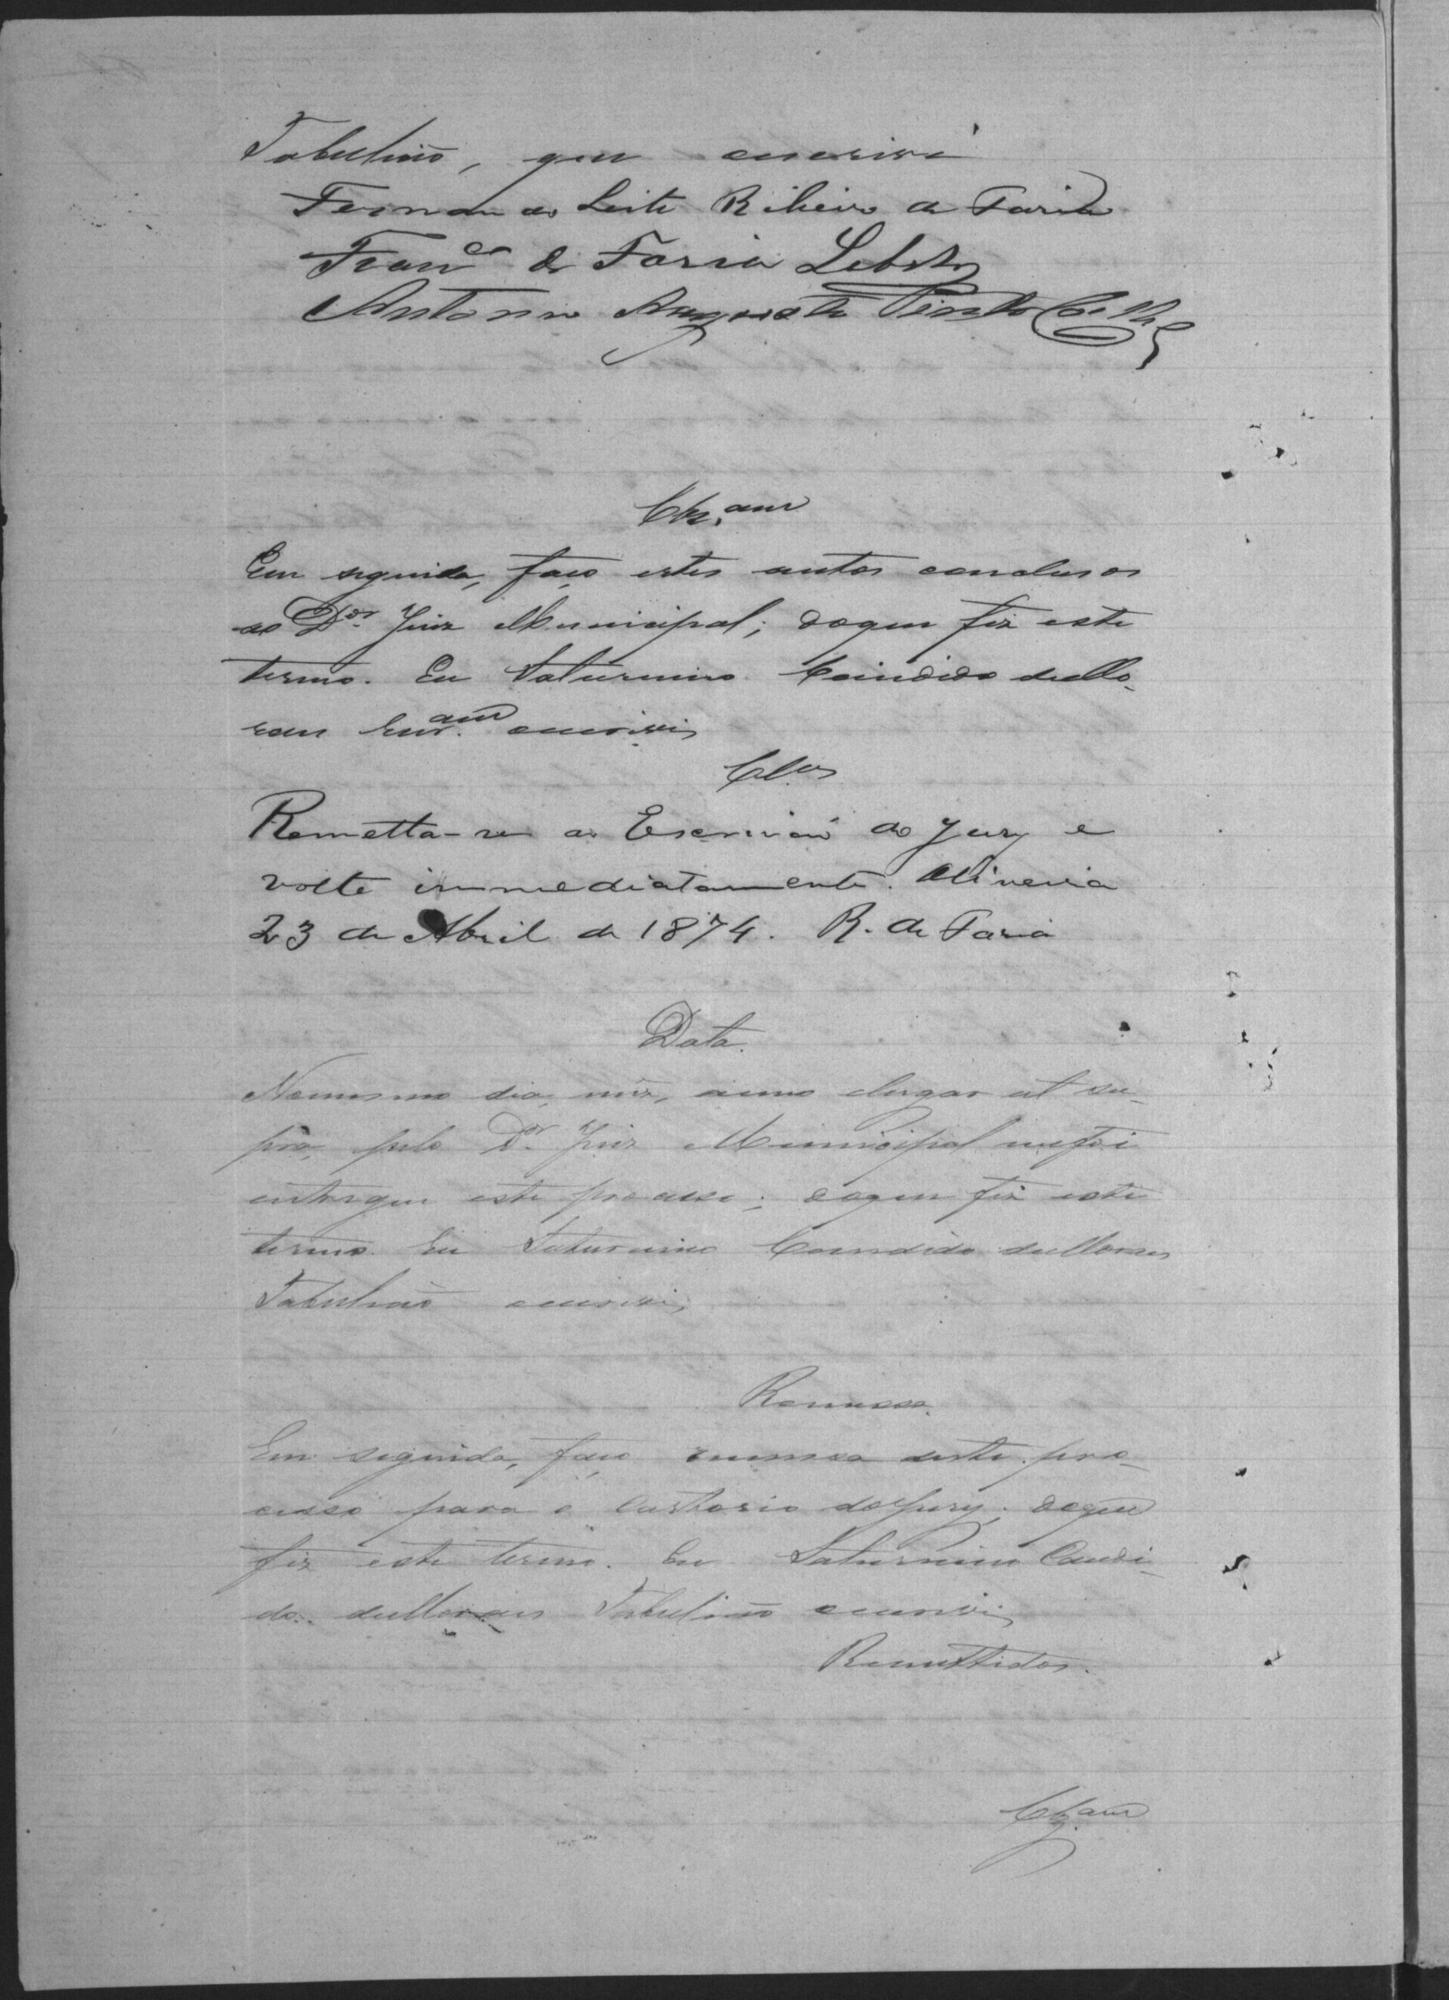 Tabellião, que escrevi
Fernando Leite Ribeiro de Faria
Franco de Faria Lobato
Antonio Augusto Pinto
Clz.am
Em seguida, faço estes autos conclusos
ao Dor. Juiz Municipal; doque fiz este
termo. Eu Saturnino Candido deMo-
raes Escr.am escrevi
Clos
Remetta-se ao Escrivão do Jury e
volte immediatamente. Oliveira
23 de Abril de 1874. R. de Faria
Data.
Nomesmo dia, mez, anno elugar ut su-
pra, pelo Dr. Juiz Municipal mefoi
entregue este processo; doque fiz este
termo. Eu Saturnino Candido deMoraes
Tabellião escrevi
Remessa.
Em seguida, faço remessa deste pro-
cesso para o Cartorio doJury; doque
fiz este termo. Eu Saturnino Candi-
do deMoraes Tabellião escrevi
Remettidos.
Clz.am